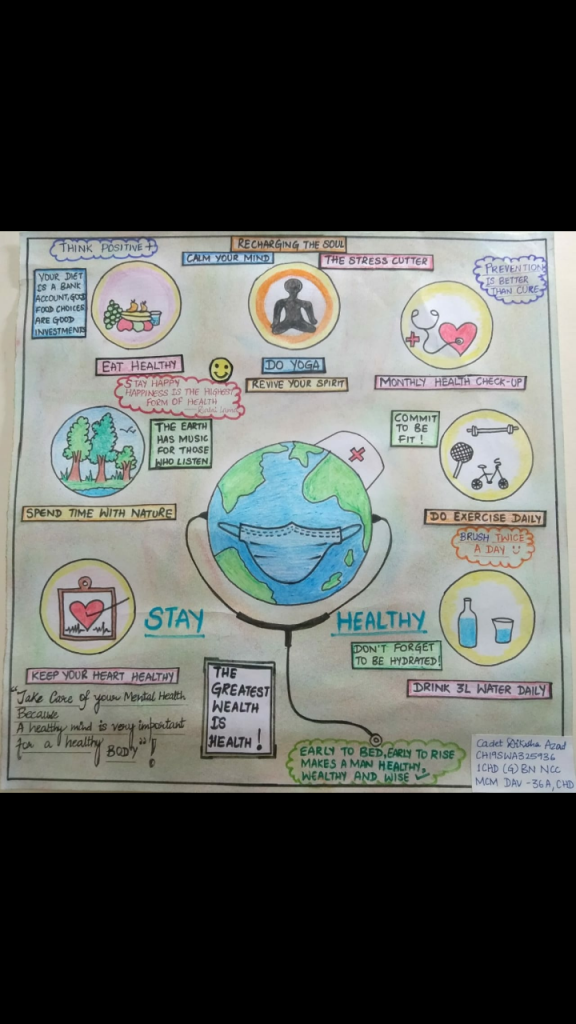 THINK POSITIVE +
RECHARGING THE SOUL
CALM YOUR MIND
THE STRESS CUTTER
PREVENTION
IS BETTER
THAN CURE
YOUR DIET
IS A BANK
ACCOUNT, GOOD
FOOD CHOICES
ARE GOOD
INVESTMENTS
EAT HEALTHY
DO YOGA
REVIVE YOUR SPIRIT
MONTHLY HEALTH CHECK-UP
STAY HAPPY
HAPPINESS IS THE HIGHEST
FORM OF HEALTH
THE EARTH
HAS MUSIC
FOR THOSE
WHO LISTEN
COMMIT
TO BE
FIT !
SPEND TIME WITH NATURE
DO EXERCISE DAILY
BRUSH TWICE
A DAY
STAY HEALTHY
DON'T FORGET
TO BE HYDRATED!
KEEP YOUR HEART HEALTHY
DRINK 3L WATER DAILY
"Take Care of your Mental Health
Because
A healthy mind is very important
for a healthy BODY"!
THE
GREATEST
WEALTH
IS
HEALTH !
EARLY TO BED, EARLY TO RISE
MAKES A MAN HEALTHY,
WEALTHY AND WISE
Cadet Azad
CH19SWA325936
1CHD (G) BN NCC
MCM DAV -36A, CHD